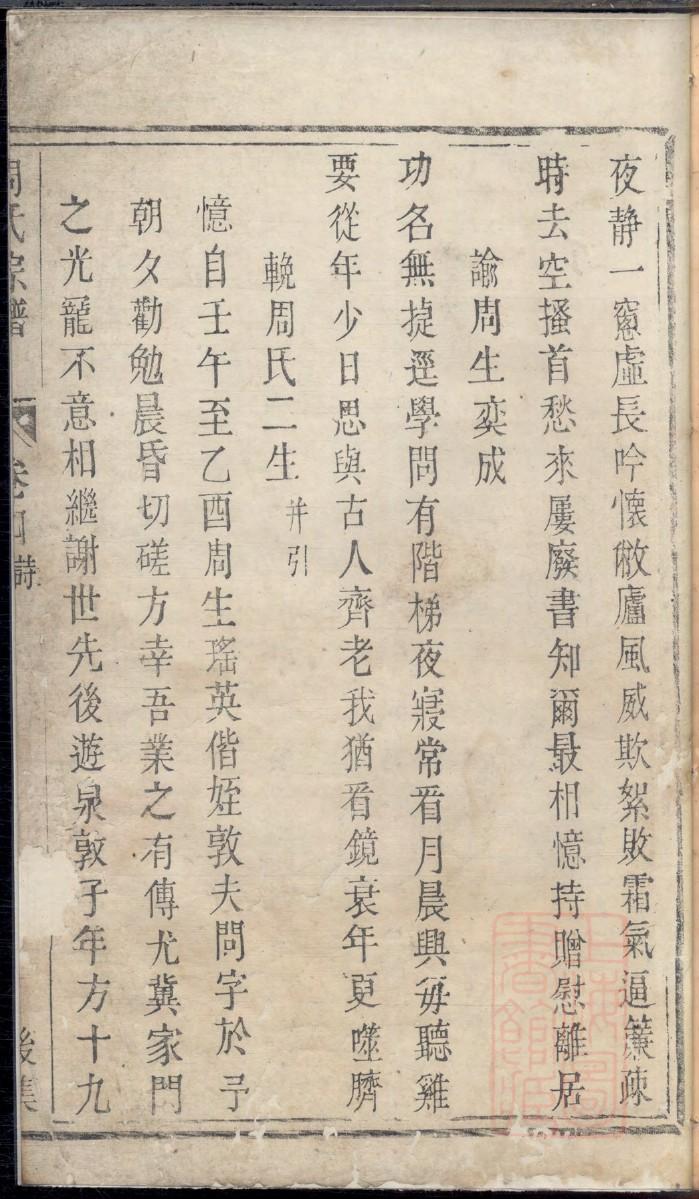 夜静一窻虛長吟懷敝廬風威欺絮敗霜氣逼簾疎
時去空搔首愁來屢廢書知爾最相憶持贈慰離居
諭周生奕成
功名無㨗逕學問有階梯夜寢常看月晨興毎聽雞
要從年少日思與古人齊老我猶看鏡衰年更噬臍
輓周氏二生 并引
憶自壬午至乙酉周生瑤英偕姪敦夫問字於予
朝夕勸勉晨昏切磋方幸吾業之有傳尤冀家門
之光寵不意相繼謝世先後遊泉敦子年方十九
周氏宗譜 卷四 詩 後集